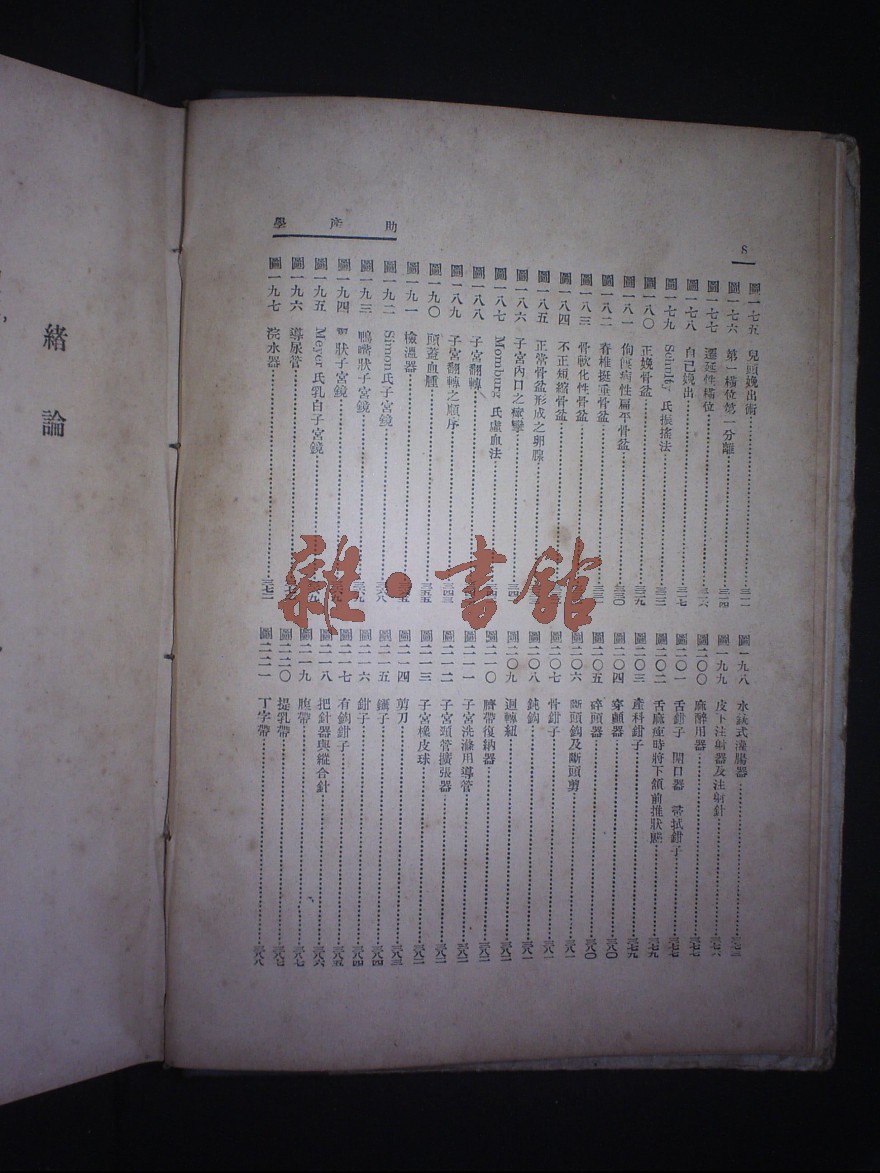 8
助產學
圖一七五 兒頭娩出術 三二一
圖一七六 第一橫位第一分離 三二四
圖一七七 遷延性橫位 三二六
圖一七八 自己娩出 三二七
圖一七九 氏振搖法 三三三
圖一八〇 正娩骨盆 三二九
圖一八一 佝僂病性扁平骨盆 三三〇
圖一八二 脊椎挺垂骨盆
圖一八三 骨軟化性骨盆
圖一八四 不正短縮骨盆
圖一八五 正常骨盆形成之卵腺
圖一八六 子宮內口之痙攣
圖一八七 Momburg 氏虛血法
圖一八八 子宮翻轉
圖一八九 子宮翻轉之順序 三四三
圖一九〇 頭蓋血腫 三五五
圖一九一 檢溫器
圖一九二 Simon 氏子宮鏡 三六八
圖一九三 鴨嘴狀子宮鏡 三六九
圖一九四 狀子宮鏡
圖一九五 Meyer 氏乳白子宮鏡
圖一九六 導尿管
圖一九七 浣水器 三七二
圖一九八 水銃式灌腸器 三七三
圖一九九 皮下注射器及注射針 三七六
圖二〇〇 麻醉用器 三七七
圖二〇一 舌鉗子 開口器 帶拭鉗子 三七七
圖二〇二 舌麻痺時將下顎前推狀態 三七九
圖二〇三 產科鉗子 三七九
圖二〇四 穿顱器 三八〇
圖二〇五 碎頭器 三八〇
圖二〇六 斷頭鈎及斷頭剪 三八一
圖二〇七 骨鉗子 三八一
圖二〇八 鈍鈎 三八一
圖二〇九 迴轉紐 三八二
圖二一〇 臍帶復納器 三八二
圖二一一 子宮洗滌用導管 三八二
圖二一二 子宮頸管擴張器 三八二
圖二一三 子宮橡皮球 三八二
圖二一四 剪刀 三八三
圖二一五 鑷子 三八四
圖二一六 鉗子 三八四
圖二一七 有鈎鉗子 三八五
圖二一八 把針器與縱合針 三八六
圖二一九 腹帶 三八七
圖二二〇 提乳帶 三八七
圖二二一 丁字帶 三八八
緒論
雜·書館